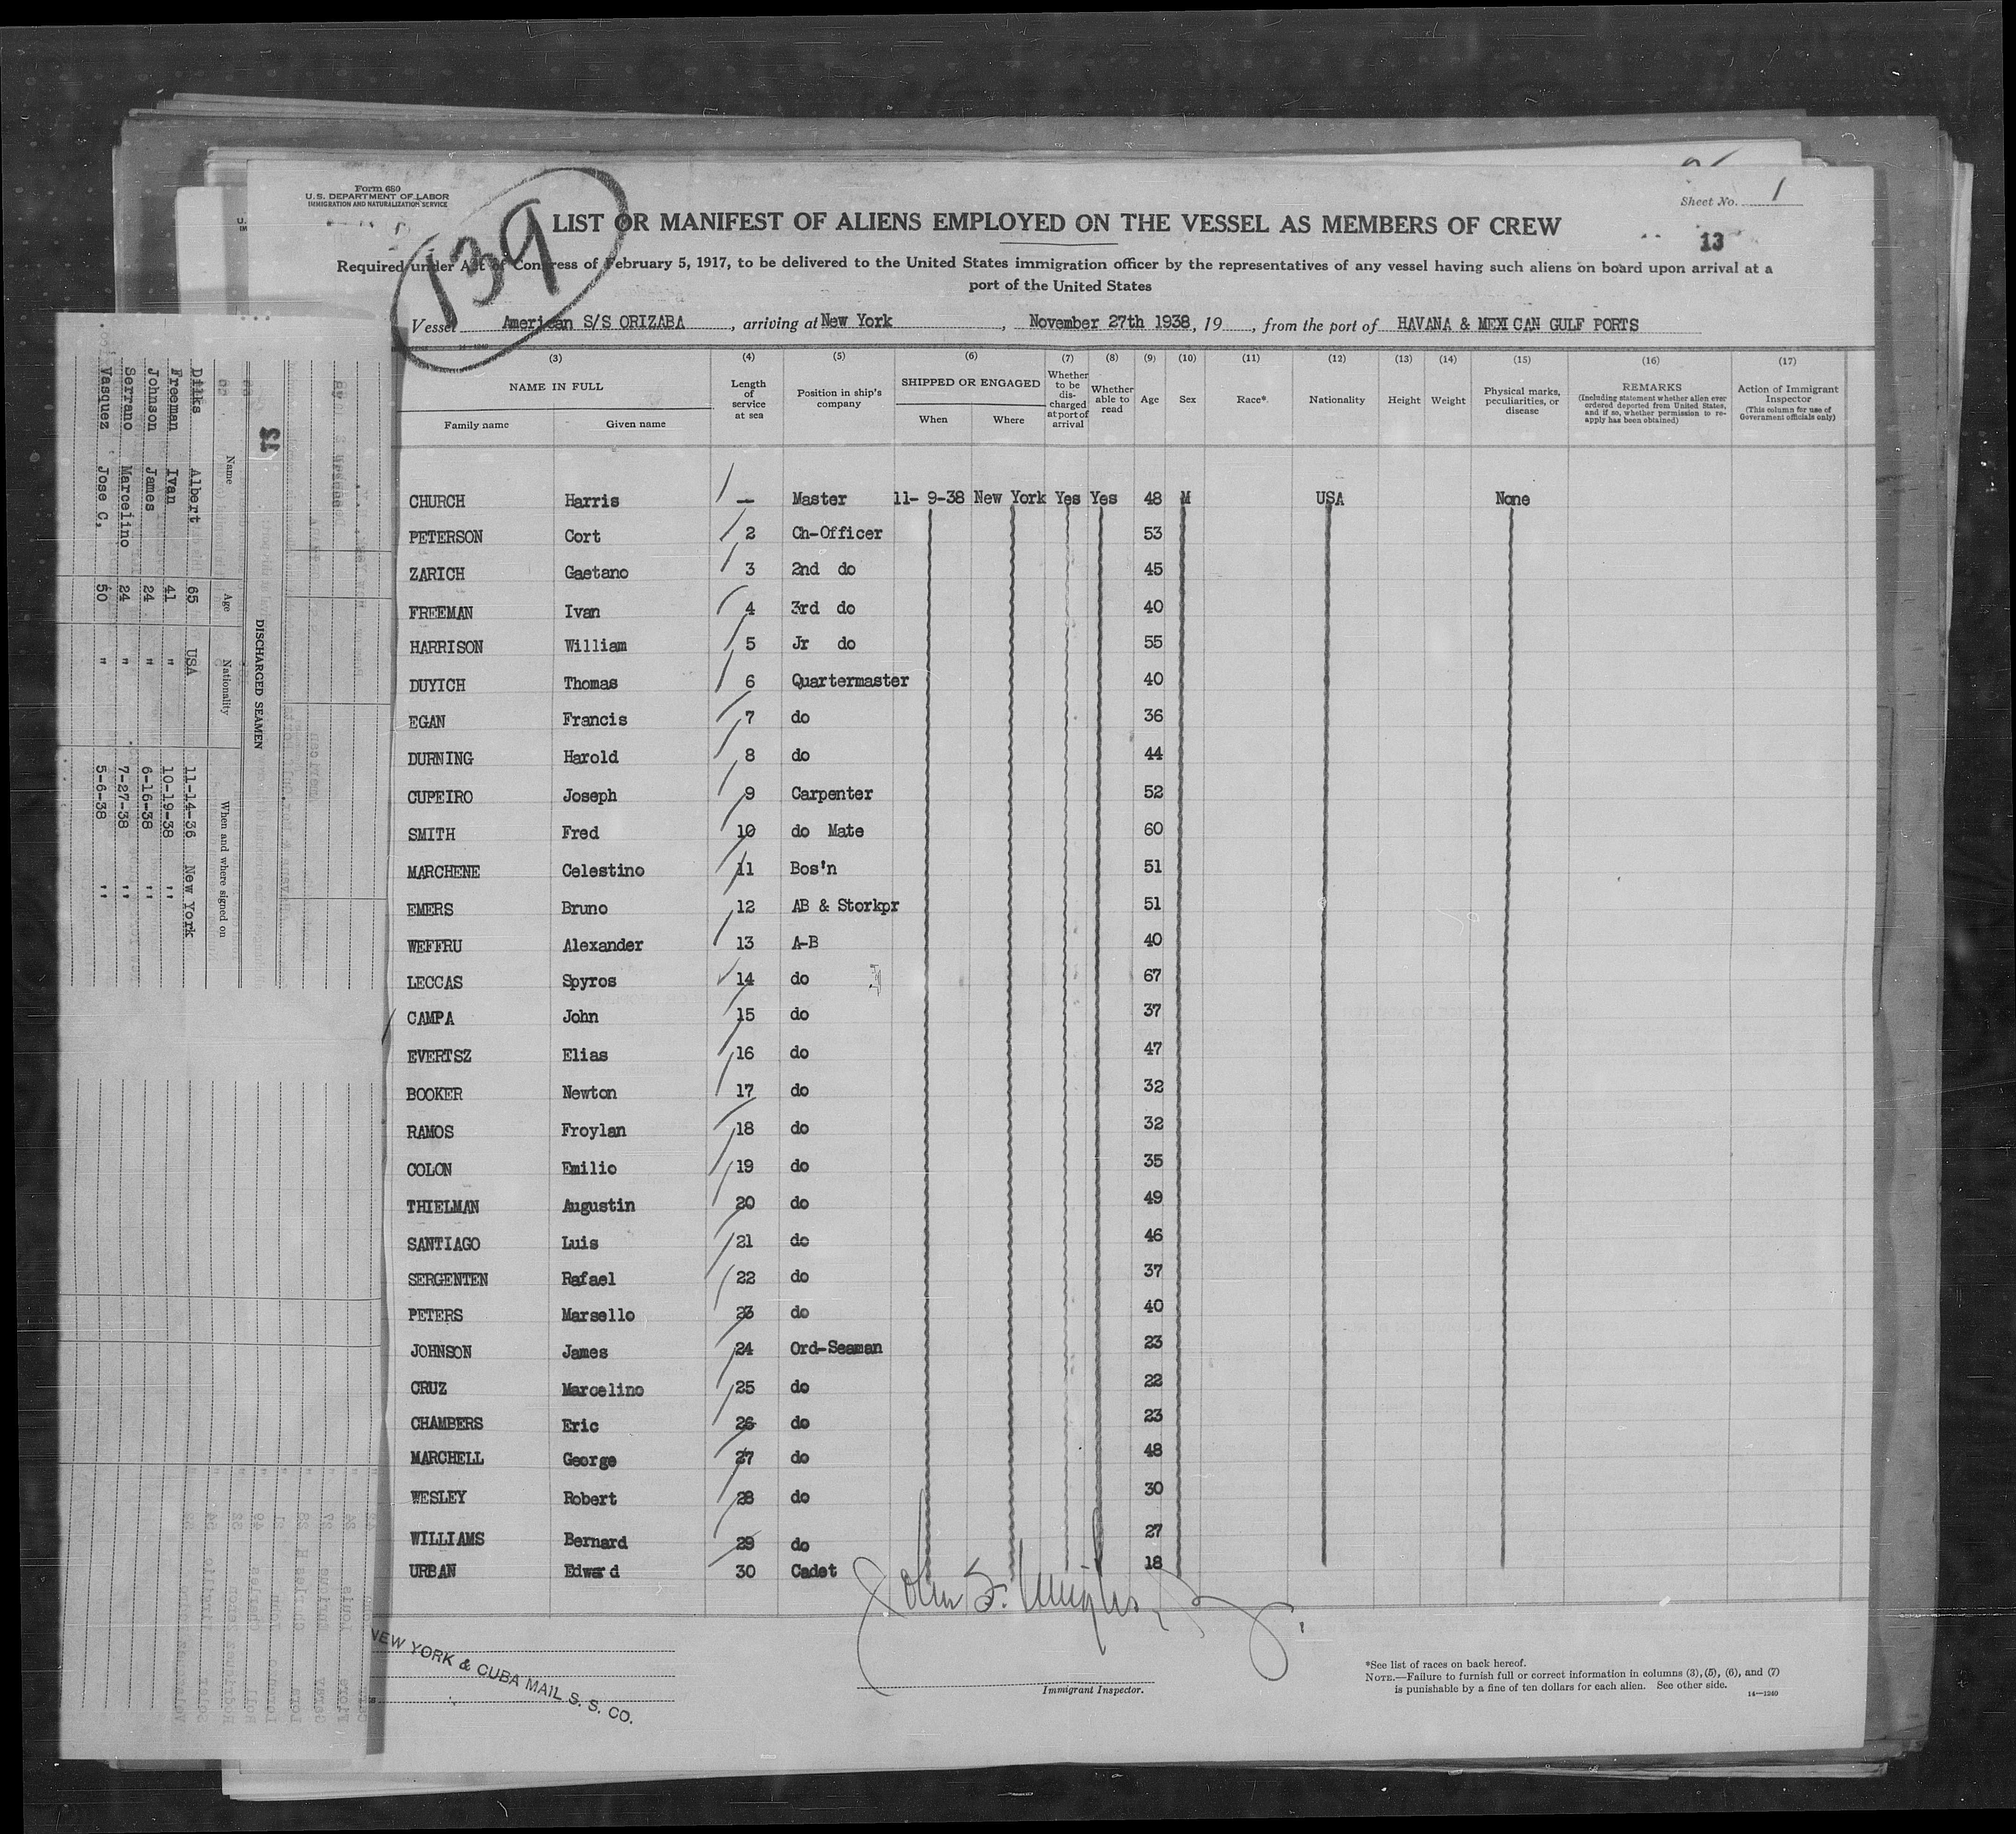 Form 680
U.S. DEPARTMENT OF LABOR
IMMIGRATION AND NATURALIZATION SERVICE
139
Sheet No. 1
LIST OR MANIFEST OF ALIENS EMPLOYED ON THE VESSEL AS MEMBERS OF CREW
13
Required under Act of Congress of February 5, 1917, to be delivered to the United States immigration officer by the representatives of any vessel having such aliens on board upon arrival at a
port of the United States
Vessel American S/S ORIZABA, arriving at New York, November 27th 1938, 19, from the port of HAVANA & MEXICAN GULF PORTS
(3) (4) (5) (6) (7) (8) (9) (10) (11) (12) (13) (14) (15) (16) (17)
NAME IN FULL
Family name Given name
Length of service at sea
Position in ship's company
SHIPPED OR ENGAGED
When Where
Whether to be discharged at port of arrival
Whether able to read
Age Sex Race* Nationality Height Weight
Physical marks, peculiarities, or disease
REMARKS
(Including statement whether alien ever ordered deported from United States, and if so, whether permission to reapply has been obtained)
Action of Immigrant Inspector
(This column for use of Government officials only)
CHURCH Harris — Master 11- 9-38 New York Yes Yes 48 M USA None
PETERSON Cort 2 Ch-Officer 53
ZARICH Gaetano 3 2nd do 45
FREEMAN Ivan 4 3rd do 40
HARRISON William 5 Jr do 55
DUYICH Thomas 6 Quartermaster 40
EGAN Francis 7 do 36
DURNING Harold 8 do 44
CUPEIRO Joseph 9 Carpenter 52
SMITH Fred 10 do Mate 60
MARCHENE Celestino 11 Bos'n 51
EMERS Bruno 12 AB & Storkpr 51
WEFFRU Alexander 13 A-B 40
LECCAS Spyros 14 do 67
CAMPA John 15 do 37
EVERTSZ Elias 16 do 47
BOOKER Newton 17 do 32
RAMOS Froylan 18 do 32
COLON Emilio 19 do 35
THIELMAN Augustin 20 do 49
SANTIAGO Luis 21 do 46
SERGENTEN Rafael 22 do 37
PETERS Marsello 23 do 40
JOHNSON James 24 Ord-Seaman 23
CRUZ Marcelino 25 do 22
CHAMBERS Eric 26 do 23
MARCHELL George 27 do 48
WESLEY Robert 28 do 30
WILLIAMS Bernard 29 do 27
URBAN Edward 30 Cadet 18
John S.
Immigrant Inspector.
NEW YORK & CUBA MAIL S. S. CO.
*See list of races on back hereof.
NOTE.—Failure to furnish full or correct information in columns (3), (5), (6), and (7)
is punishable by a fine of ten dollars for each alien. See other side.
14—1240
13
DISCHARGED SEAMEN
Name Age Nationality When and where signed on
Dilks Albert 65 USA 11-14-36 New York
Freeman Ivan 41 " 10-19-38 ''
Johnson James 24 " 6-16-38 ''
Serrano Marcelino 24 " 7-27-38 ''
Vasquez Jose C. 50 " 5-6-38 ''